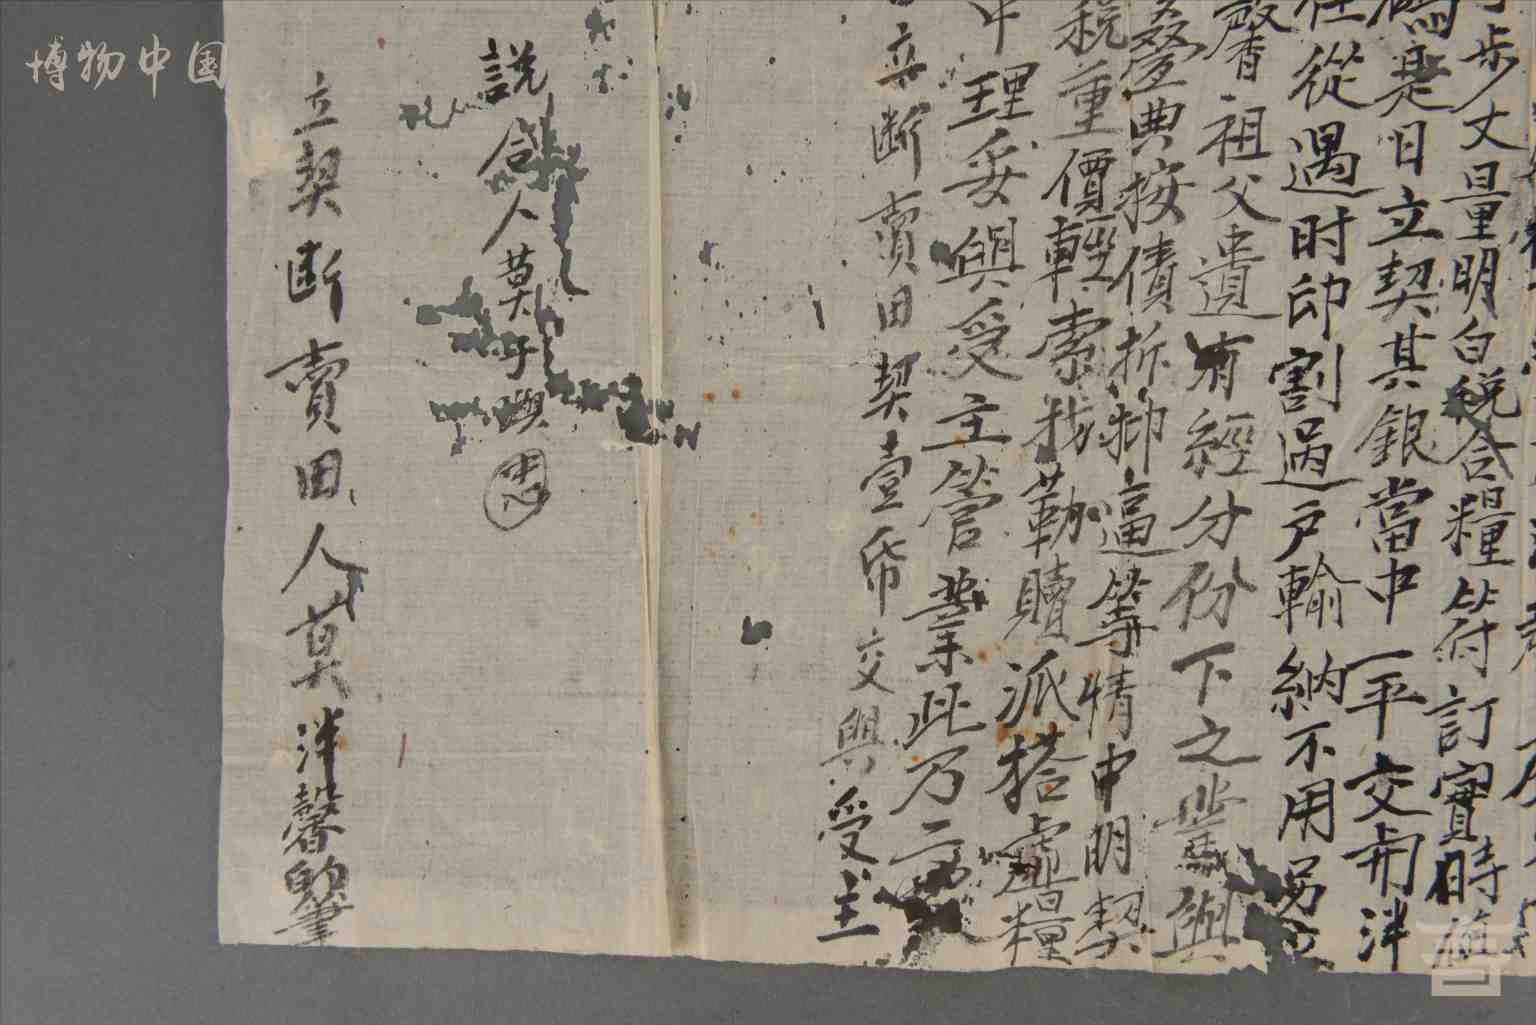 步丈量明白税合糧符訂實時值
是日立契其銀當中一平交訖泮
從遇时印割過户輸納不用另立
馨祖父遺有經分份下之業與
疊典按債折抑逼等情中明契
税重價輕索找勒贖派搭虚糧
中理妥與受主管業此乃二
立断賣田契壹帋交與受主
説合人莫
立契断賣田人莫泮馨的筆
博物中国